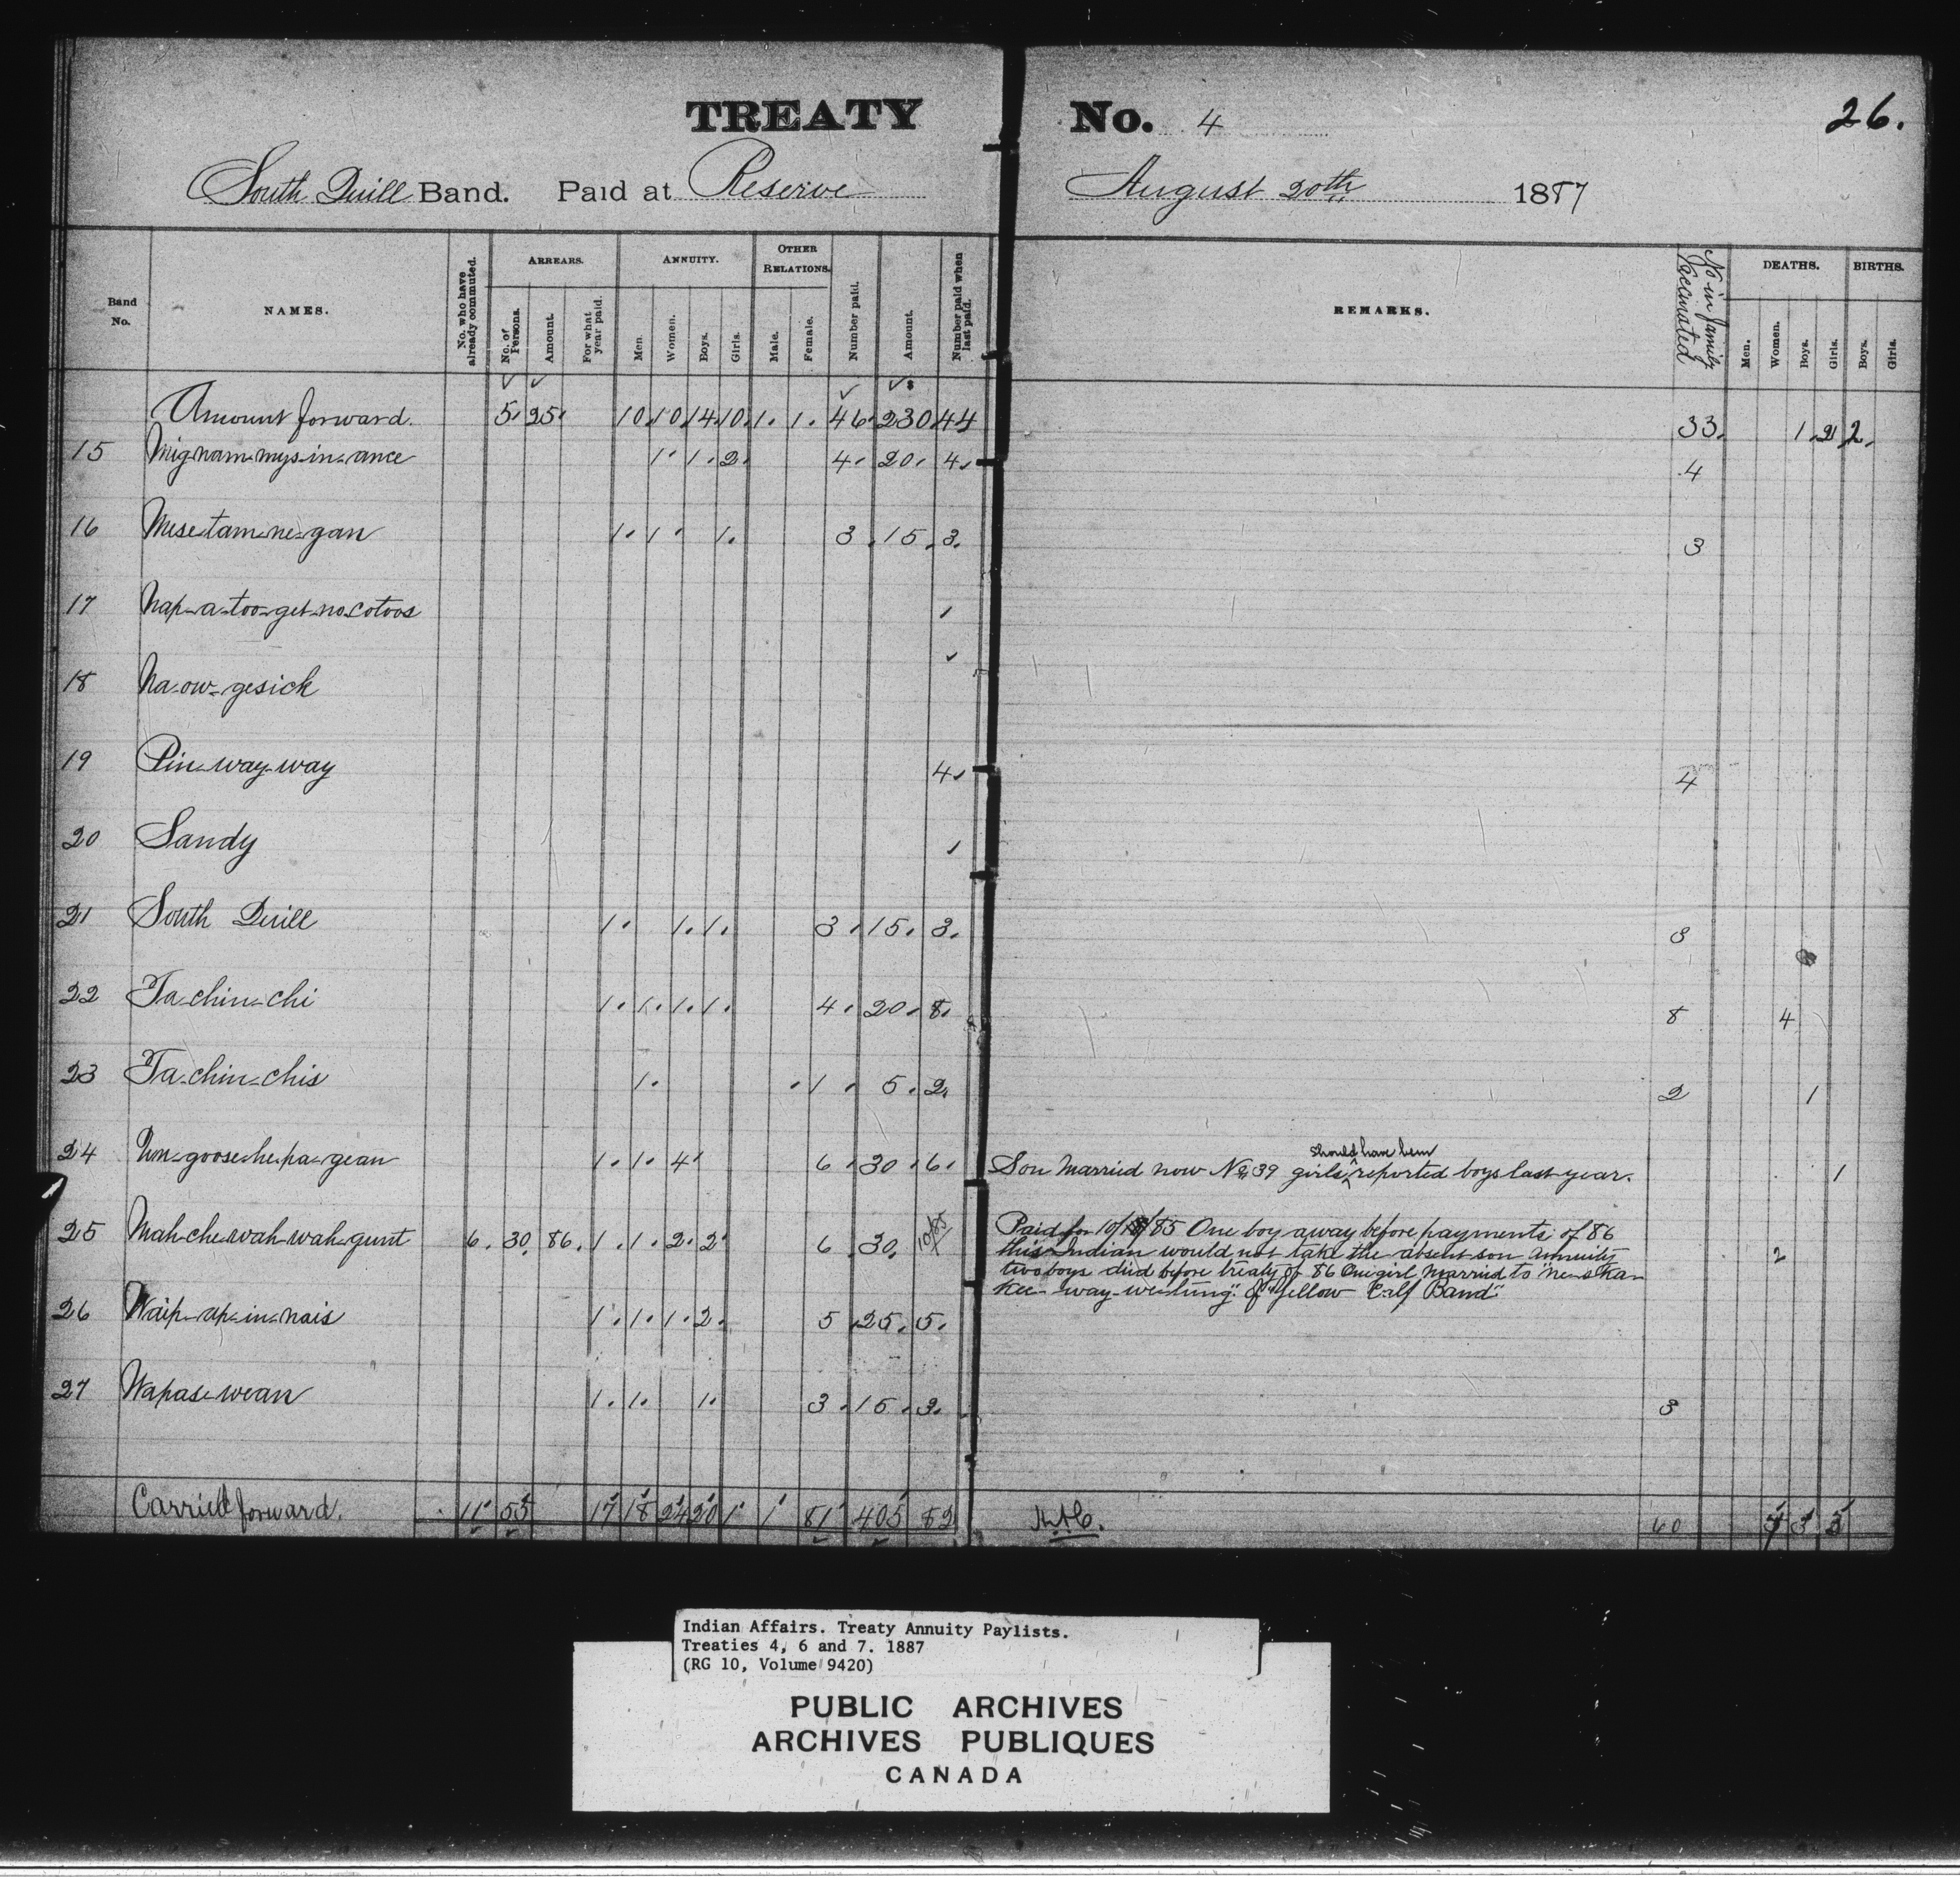 TREATY No. 4 26.
South Quill Band. Paid at Reserve August 20th 1887
Band No. NAMES. No. who have already commuted. ARREARS. No. of Persons. Amount. For what year paid. ANNUITY. Men. Women. Boys. Girls. OTHER RELATIONS. Male. Female. Number paid. Amount. Number paid when last paid. REMARKS. No in family vaccinated DEATHS. Men. Women. Boys. Girls. BIRTHS. Boys. Girls.
Amount forward. 5. 25. 10. 10. 14. 10. 1. 1. 46. 230. 44 33. 1. 2 2.
15 Mig-nam-mys-in-ance 1. 1. 2. 4. 20. 4. 4
16 Mese-tam-ne-gan 1. 1. 1. 3. 15. 3. 3
17 Nap-a-too-get-no-cotoos 1
18 Na-ow-gesick
19 Pin-way-way 4. 4
20 Sandy 1
21 South Quill 1. 1. 1. 3. 15. 3. 3
22 Ta-chin-chi 1. 1. 1. 1. 4. 20. 8. 8 4
23 Ta-chin-chis 1. 1. 5. 2. 2 1
24 1. 1. 4. 6. 30. 6. Son Married now No. 39 girls should have been reported boys last year. 1
25 Mah-che-wah-wah-gunt 6. 30. 86. 1. 1. 2. 2. 6. 30. 10/85 Paid for 10/85 One boy away before payments of 86 2
this Indian would not take the absent son annuity
two boys died before treaty of 86 One girl married to "ne-s-ka-
kee-way-we-tung" of "Yellow Calf Band"
26 Waip-ap-in-nais 1. 1. 1. 2. 5. 25. 5.
27 Wapase-wean 1. 1. 1. 3. 15. 3. 3
Carried forward. 11 55 17 18 24 20 1 1 81 405 82 60 3
Indian Affairs. Treaty Annuity Paylists.
Treaties 4, 6 and 7. 1887
(RG 10, Volume 9420)
PUBLIC ARCHIVES
ARCHIVES PUBLIQUES
CANADA